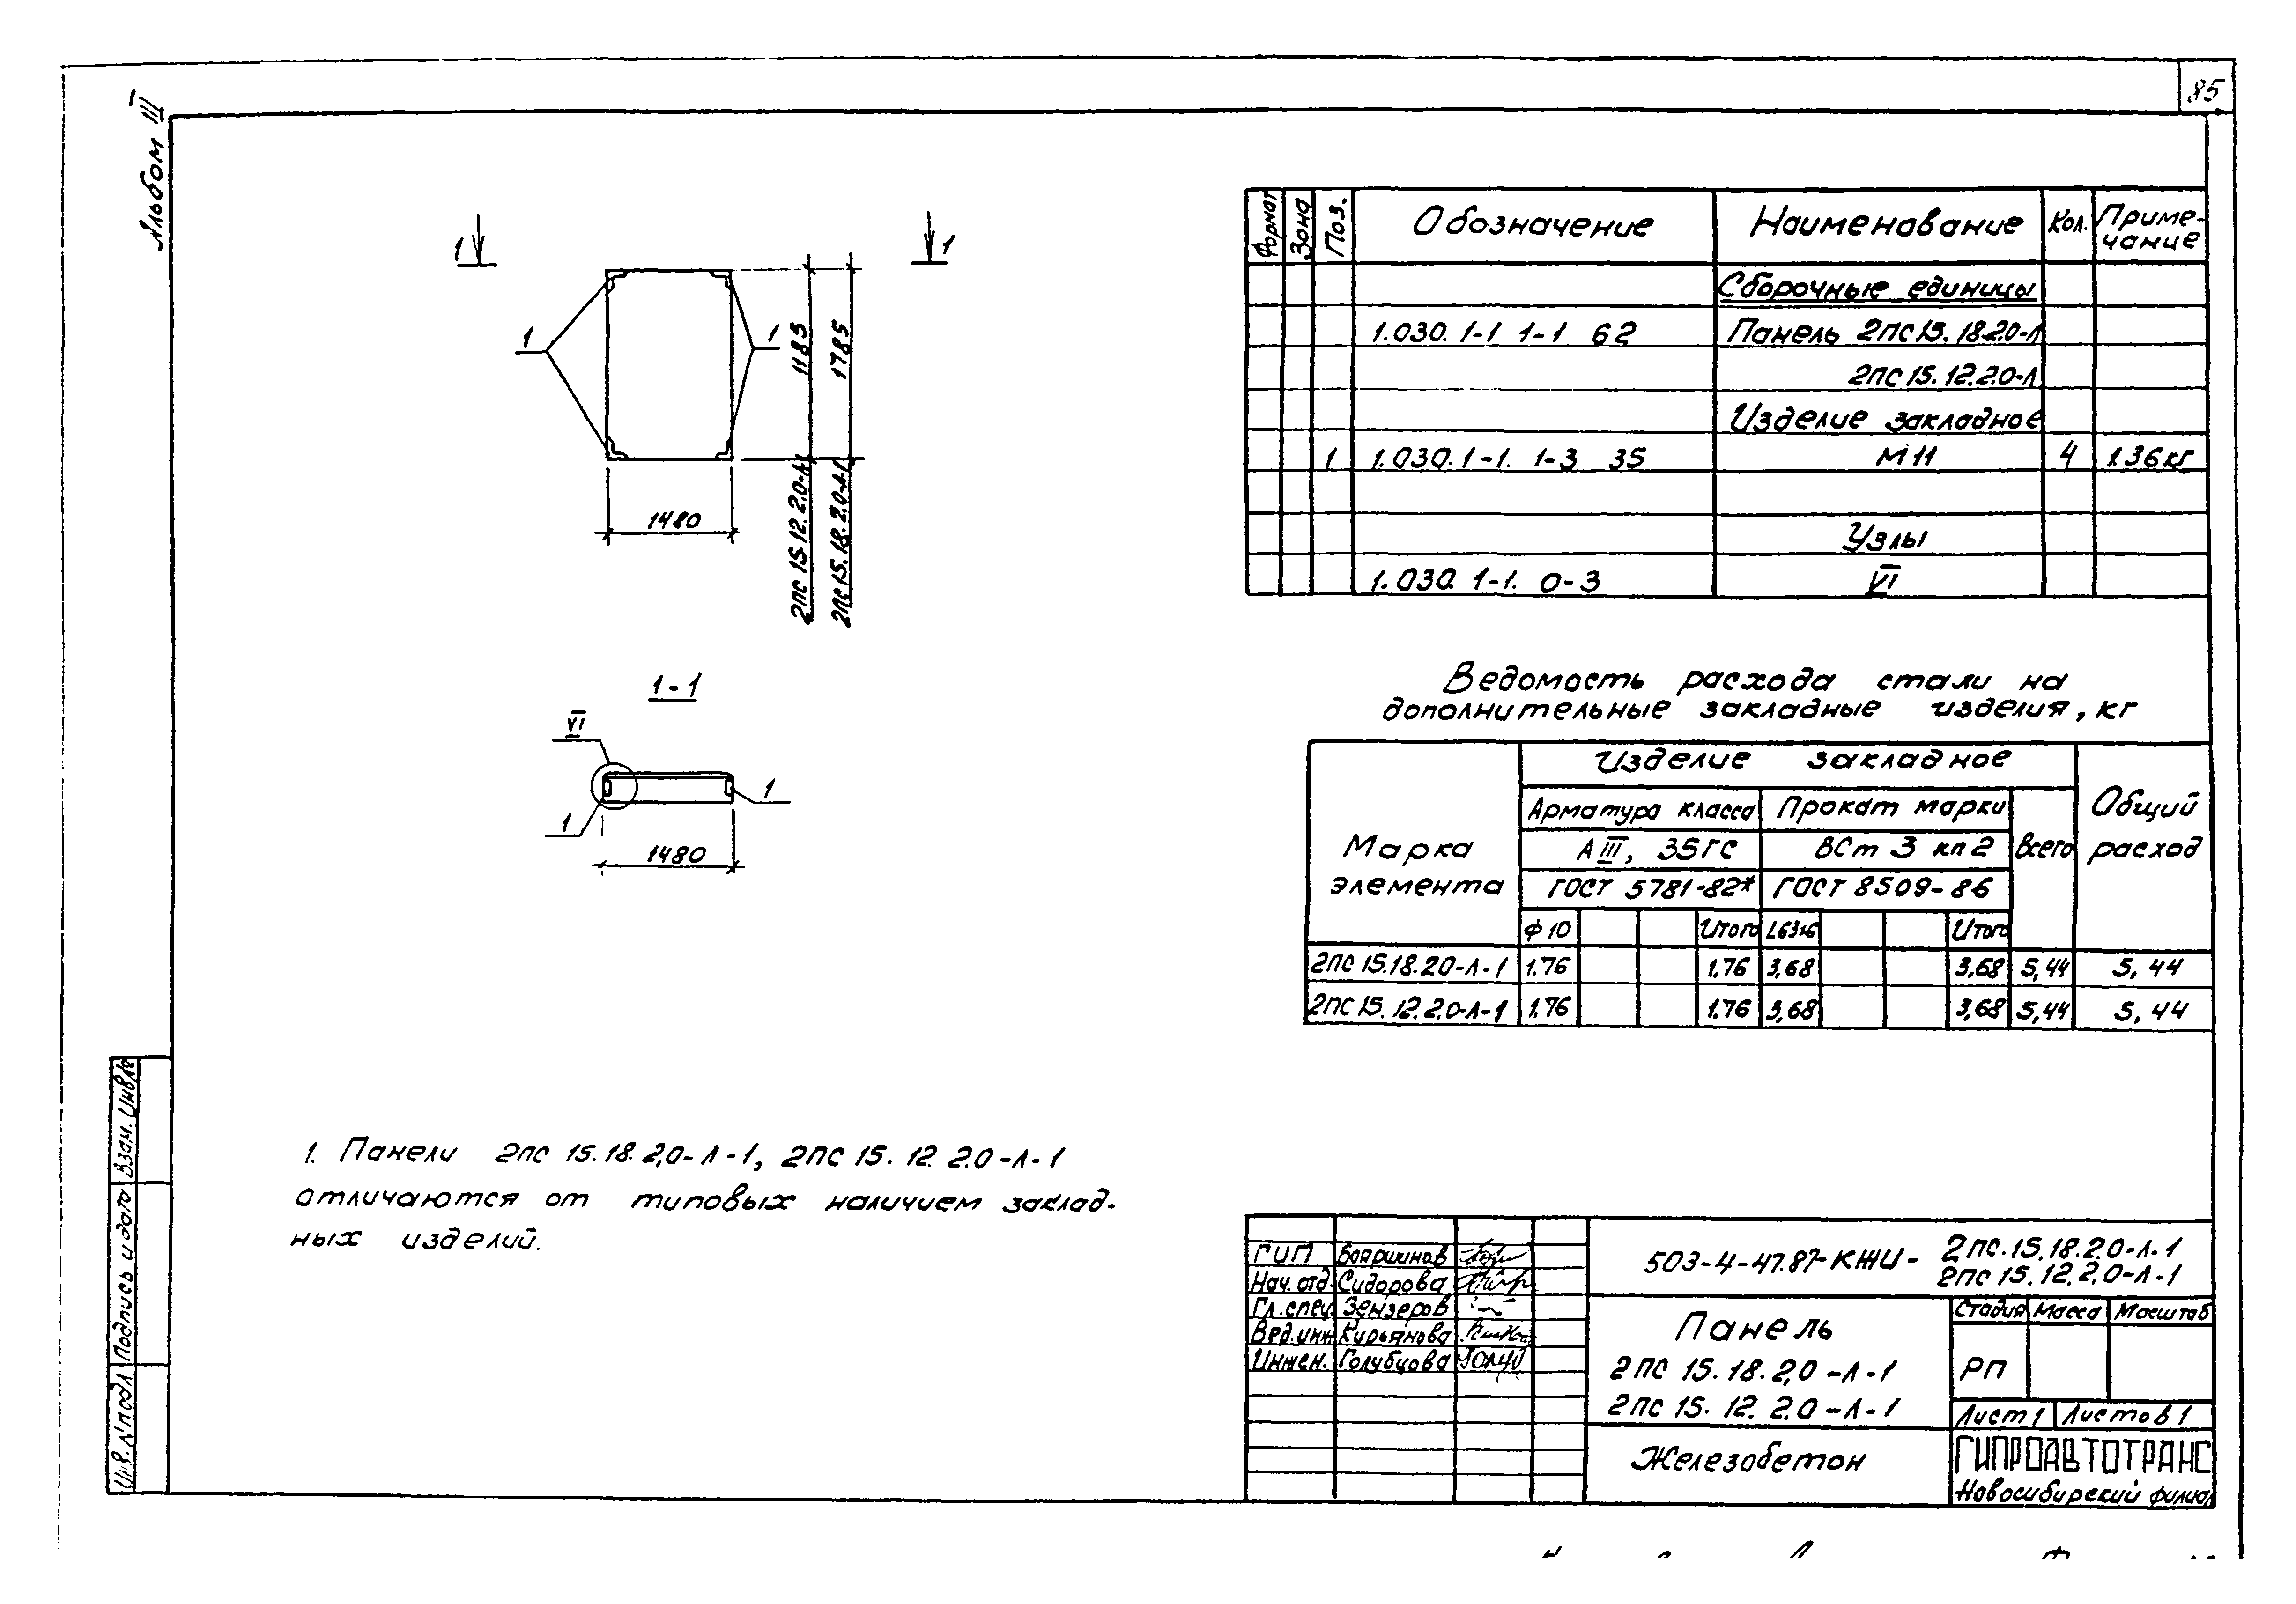 85
Альбом III
1 1
1 1
1185
1785
2ПС 15.12.2.0-Л-1
2ПС 15.18.2.0-Л-1
1480
1-1
VI
1
1
1480
1. Панели 2ПС 15.18.2,0-Л-1, 2ПС 15.12.2.0-Л-1
отличаются от типовых наличием заклад-
ных изделий.
Формат Зона Поз. Обозначение Наименование Кол. Приме-
чание
Сборочные единицы
1.030.1-1 1-1 62 Панель 2ПС15.18.2.0-Л
2ПС15.12.2.0-Л
Изделие закладное
1 1.030.1-1. 1-3 35 М11 4 1.36кг
Узлы
1.030.1-1. 0-3 VI
Ведомость расхода стали на
дополнительные закладные изделия, кг
Марка элемента Изделие закладное Общий расход
Арматура класса Прокат марки Всего
АIII, 35ГС ВСт 3 кп2
ГОСТ 5781-82* ГОСТ 8509-86
Ф10 Итого L63х6 Итого
2ПС 15.18.2.0-Л-1 1.76 1.76 3,68 3,68 5,44 5,44
2ПС 15.12.2.0-Л-1 1.76 1.76 3,68 3,68 5,44 5,44
Взам. Инв.№
Подпись и дата
Инв. № подл
ГИП Бояршинов
Нач. отд. Сидорова
Гл. спец. Зензеров
Вед. инж Кирьянова
Инжен. Голубцова
503-4-47.87-КЖИ- 2ПС.15.18.2.0-Л-1
2ПС 15.12.2,0-Л-1
Панель
2ПС 15.18.2,0-Л-1
2ПС 15.12.2.0-Л-1
Стадия Масса Масштаб
РП
Лист 1 Листов 1
Железобетон
ГИПРОАВТОТРАНС
Новосибирский филиал